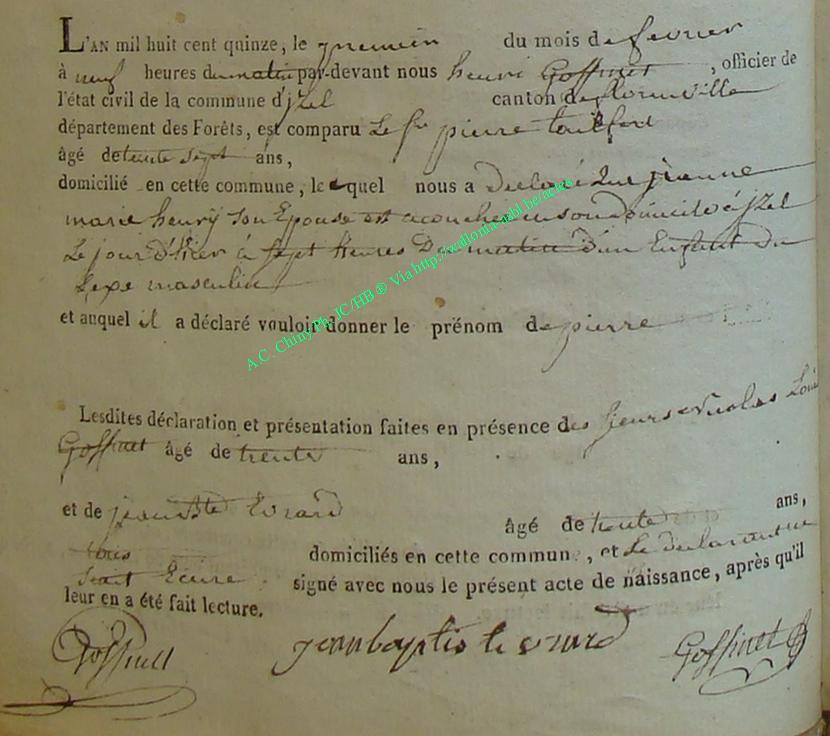 L'AN mil huit cent quinze, le premier du mois de fevrier
à neuf heures du matin par-devant nous henri Goffinet, officier de
l'état civil de la commune d'jzel canton de florenville
département des Forêts, est comparu Le Sr pierre
âgé de trente sept ans,
domicilié en cette commune, lequel nous a Declaré que jeanne
marie henrij son Epouse est acouchee en son domicile à jzel
Le jour d'hier à sept heures Du matin d'un Enfant du
Sexe masculin
et auquel il a déclaré vouloir donner le prénom de pierre
Lesdites déclaration et présentation faites en présence des sieurs Nicolas Louis
Goffinet âgé de trente ans,
et de jean Bte Evrard âgé de trente ans,
tous domiciliés en cette commune, et Le declarant ne
sait Ecrire signé avec nous le présent acte de naissance, après qu'il
leur en a été fait lecture.
Goffinet jean baptiste evrard Goffinet
A.C. Chiny Ph. JC/HB ® Via http://wallonia-asbl.be/actes